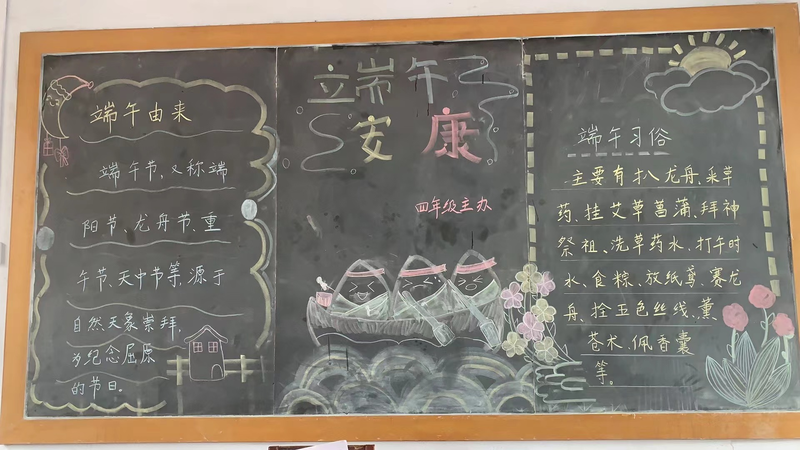 端午由来
端午节,又称端
阳节、龙舟节、重
午节、天中节等,源于
自然天象崇拜,
为纪念屈原
的节日.
端午
安康
四年级主办
端午习俗
主要有扒龙舟、采草
药、挂艾草菖蒲、拜神
祭祖、洗草药水、打午时
水、食粽、放纸鸢、赛龙
舟、拴五色丝线、薰
苍术、佩香囊
等。